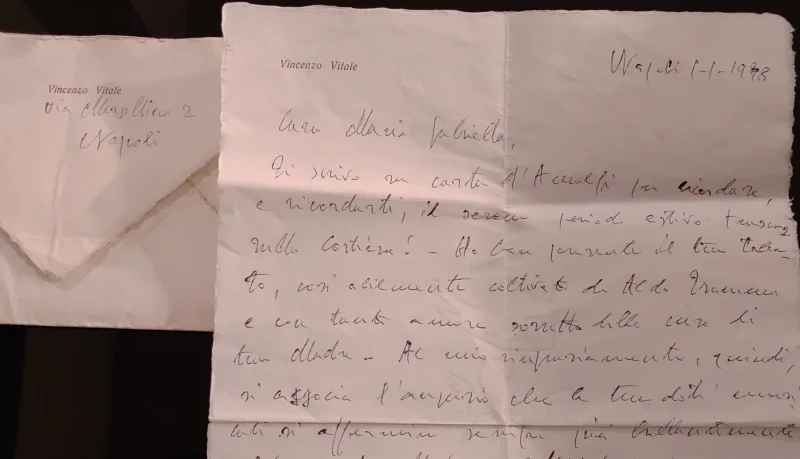 Vincenzo Vitale
Via
2
Napoli
Vincenzo Vitale
Napoli 1-1-1998
Cara Maria Gabriella,
Ti scrivo su carta d'Amalfi per ricordare,
e ricordarti, il sereno periodo estivo
sulla Costiera! - Ho ben presente il tuo talen-
to, così abilmente coltivato da Aldo
e con tanto amore sorretto dalle cure di
tua Madre - Al mio ringraziamento, quindi,
si associa l'augurio che le tue doti musi
cali si affermino sempre più brillantemente